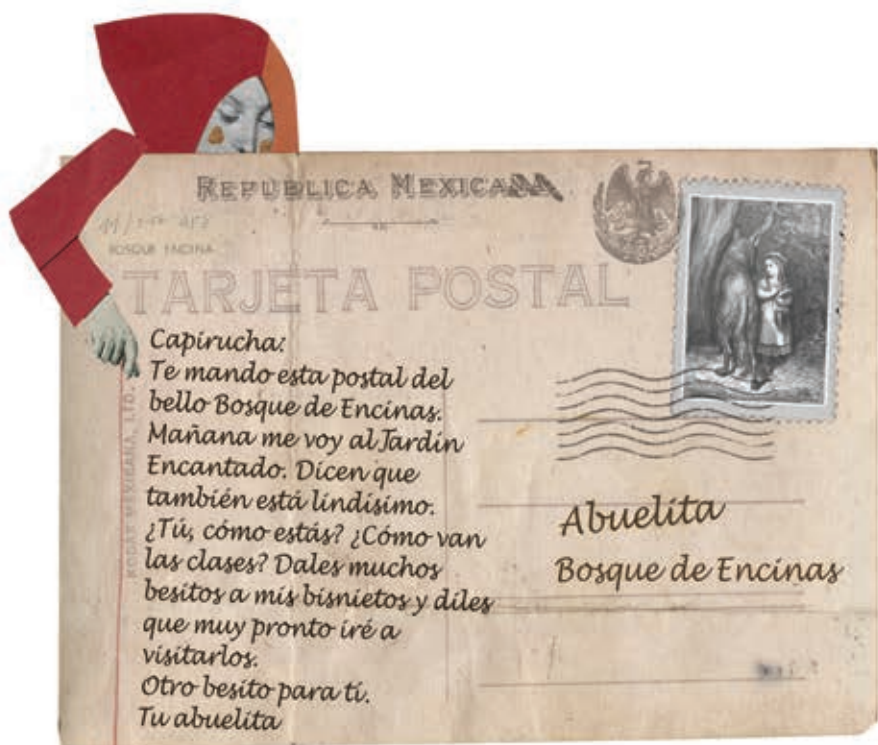 REPUBLICA MEXICANA
BOSQUE ENCINA
TARJETA POSTAL
Capirucha:
Te mando esta postal del
bello Bosque de Encinas.
Mañana me voy al Jardín
Encantado. Dicen que
también está lindísimo.
¿Tú, cómo estás? ¿Cómo van
las clases? Dales muchos
besitos a mis bisnietos y diles
que muy pronto iré a
visitarlos.
Otro besito para ti.
Tu abuelita
KODAK MEXICANA, LTD.
Abuelita
Bosque de Encinas